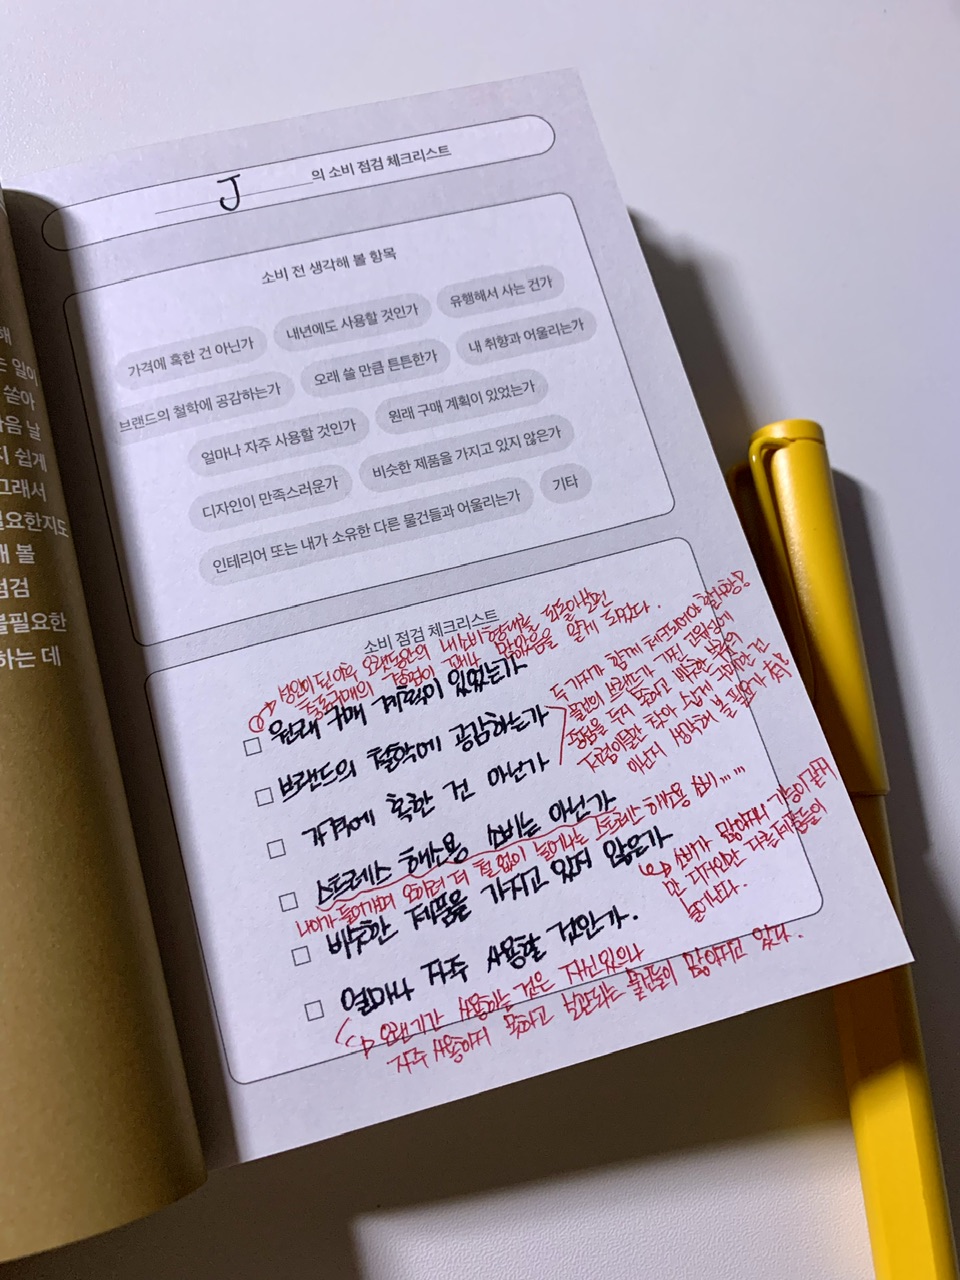 J의 소비 점검 체크리스트
소비 전 생각해 볼 항목
가격에 혹한 건 아닌가 내년에도 사용할 것인가 유행해서 사는 건가
브랜드의 철학에 공감하는가 오래 쓸 만큼 튼튼한가 내 취향과 어울리는가
얼마나 자주 사용할 것인가 원래 구매 계획이 있었는가
디자인이 만족스러운가 비슷한 제품을 가지고 있지 않은가
인테리어 또는 내가 소유한 다른 물건들과 어울리는가 기타
소비 점검 체크리스트
성인이 된 이후 오랜동안의 내 소비형태를 되돌아보면
충동구매의 알게 되었다.
원래 구매 계획이 있었는가
브랜드의 철학에 공감하는가
가격에 혹한 건 아닌가
두가지가 함께 체크되어야 할 사항!
물건의 브랜드가 가진
두지 못하고 비슷한
찾아 쉽게 구매한 건
아닌지 생각해 볼 필요가 있음
스트레스 해소용 소비는 아닌가
나이가 들어가며 오히려 더 철없이 늘어나는 스트레스 해소용 소비....
비슷한 제품을 가지고 있지 않은가
소비가 많아지니 기능이 같지
만 디자인만 다른 제품들이
늘어난다.
얼마나 자주 사용할 것인가.
오랜기간 사용하는 것은 자신있으나
자주 사용하지 못하고 보관되는 물건들이 많아지고 있다.
해
는 일이
쏟아
음 날
지 쉽게
그래서
필요한지도
해 볼
점검
불필요한
하는 데